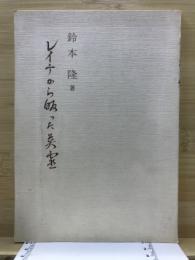 鈴木隆著
レイテから帰った英霊